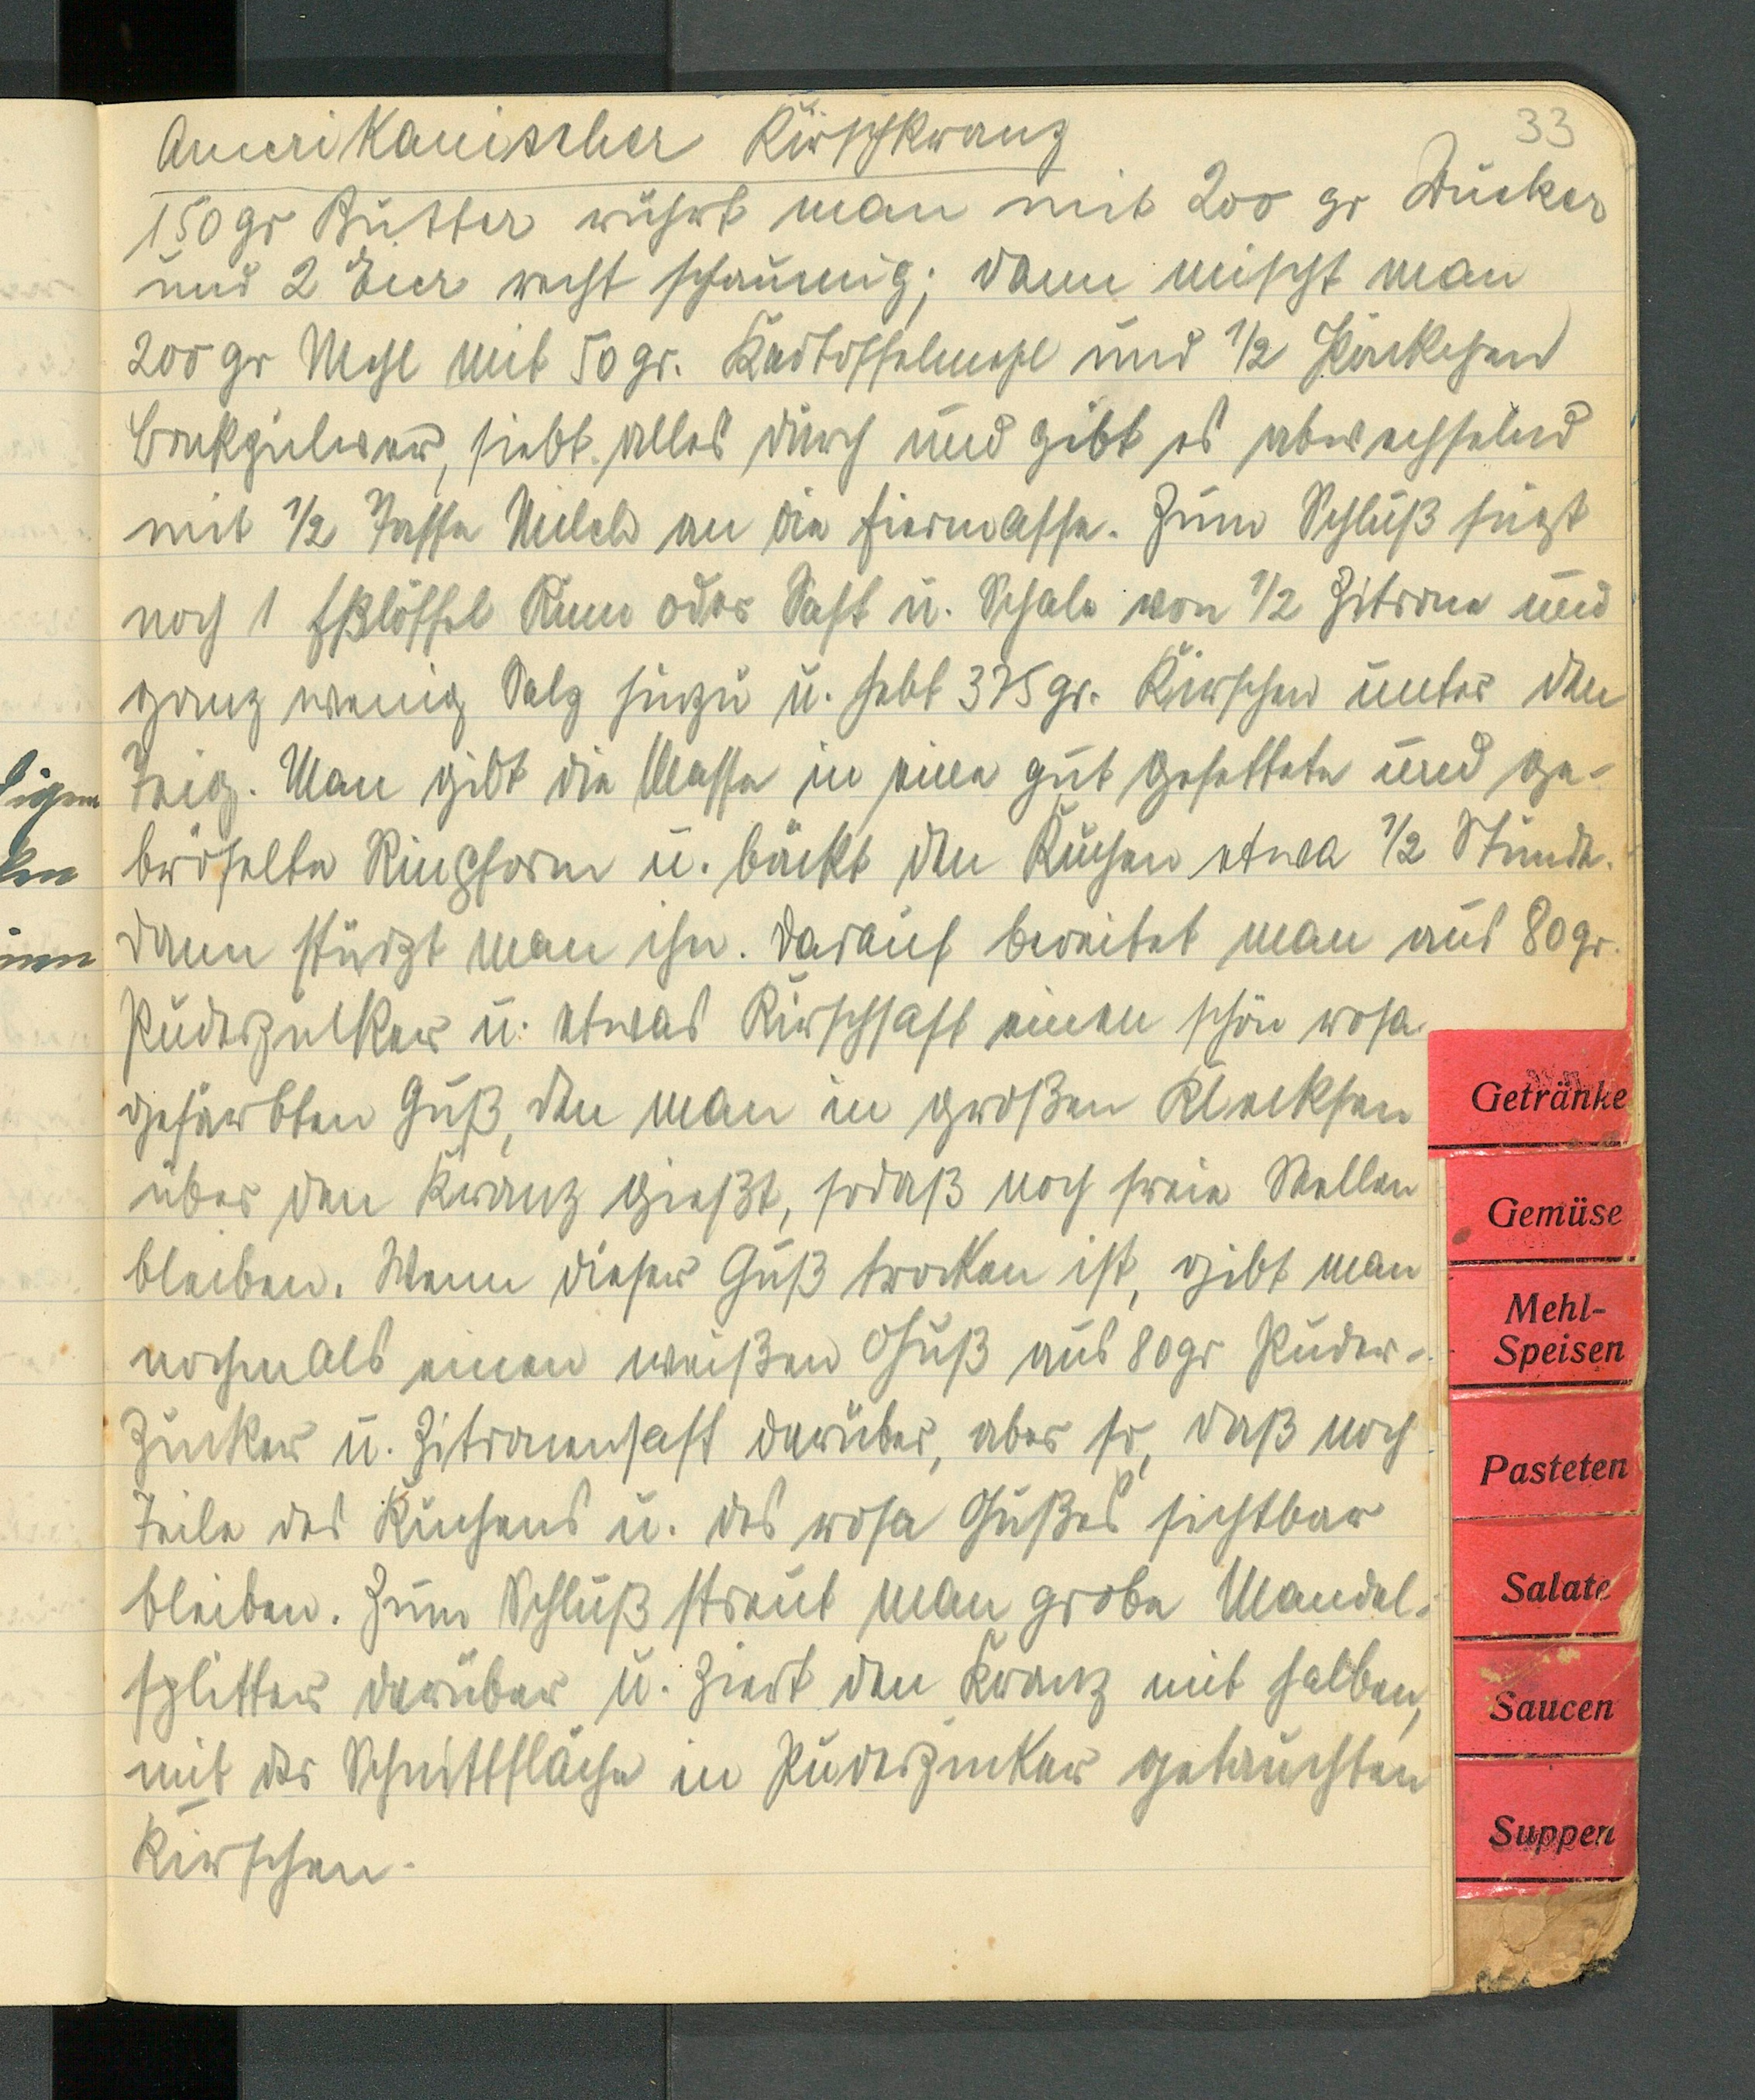 33
Amerikanischer Kirschkranz
150 gr Butter rührt man mit 200 gr Zucker
und 2 Eier recht schaumig; dann mischt man
200 gr Mehl mit 50 gr. Kartoffelmehl und 1/2 Päckchen
Backpulver, siebt alles durch und gibt es abwechselnd
mit 1/2 Tasse Milch an die Eiermasse. Zum Schluß fügt
noch 1 Eßlöffel Rum oder Saft u. Schale von 1/2 Zitrone und
ganz wenig Salz hinzu u. hebt 375 gr. Kirschen unter den
Teig. Man gibt die Masse in eine gut gefettete und ge-
bröselte Ringform u. bäckt den Kuchen etwa 1/2 Stunde.
dann stürzt man ihn. Darauf bereitet man aus 80 gr.
Puderzucker u. etwas Kirschsaft einen schön rosa
gefärbten Guß, den man in großen Klecksen
über den Kranz gießt, sodaß noch freie Stellen
bleiben. Wenn dieser Guß trocken ist, gibt man
nochmals einen weißen Guß aus 80 gr Puder-
zucker u. Zitronensaft darüber, aber so, daß noch
Teile des Kuchens u. des rosa Gußes sichtbar
bleiben. Zum Schluß streut man grobe Mandel-
splitter darüber u. ziert den Kranz mit halben,
mit der Schnittfläche in Puderzucker getauchten
Kirschen.
Getränke
Gemüse
Mehl-
Speisen
Pasteten
Salate
Saucen
Suppen